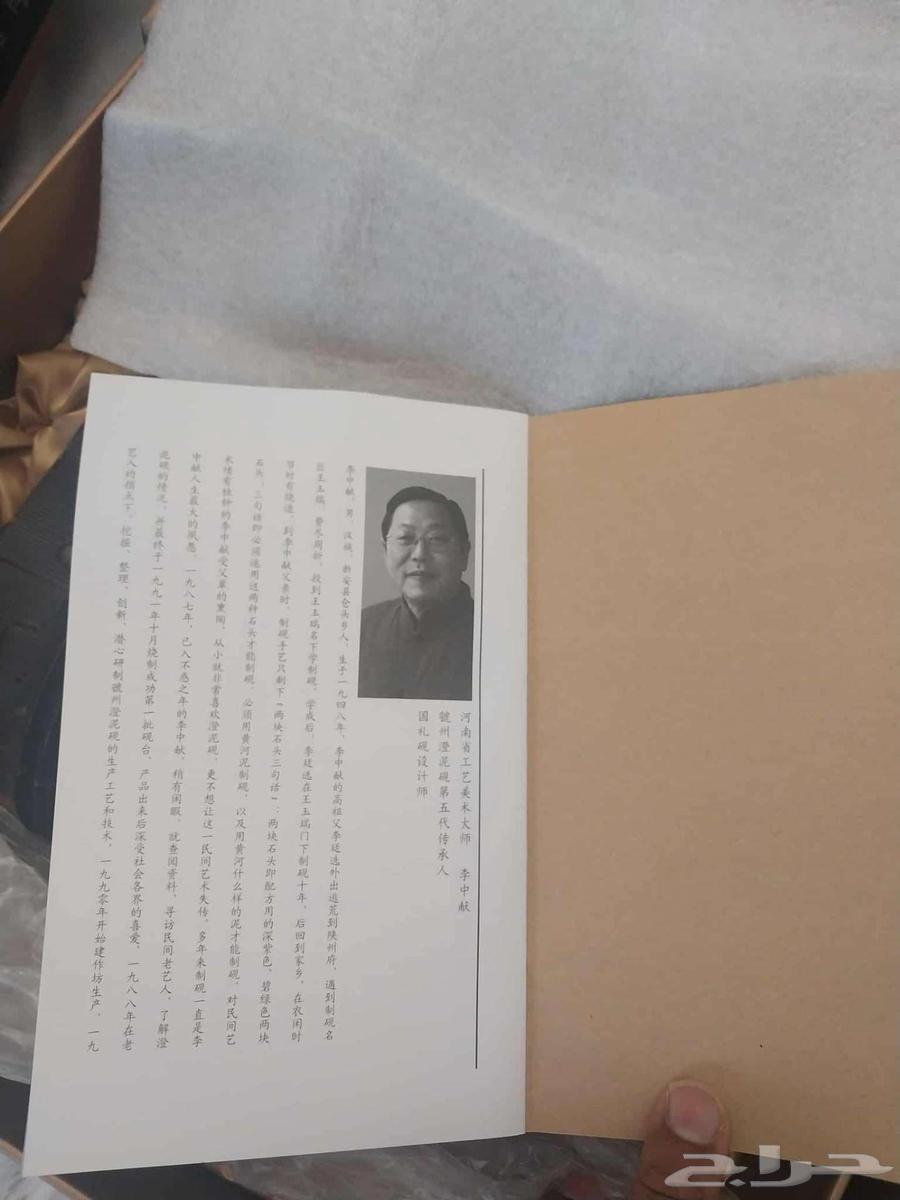 河南省工艺美术大师 李中献
虢州澄泥砚第五代传承人
国礼砚设计师
李中献，男，汉族，新安县仓头乡人，生于一九四八年，李中献的高祖父李廷选外出逃荒到陕州府，遇到制砚名
匠王玉瑞，费尽周折，投到王玉瑞名下学制砚。学成后，李廷选在王玉瑞门下制砚十年，后回到家乡，在农闲时
节时有烧造。到李中献父亲时，制砚手艺只剩下“两块石头三句话”：两块石头即配方用的深紫色、碧绿色两块
石头，三句话即必须选用这两种石头才能制砚、必须用黄河泥制砚，以及用黄河什么样的泥才能制砚。对民间艺
术情有独钟的李中献受父辈的熏陶，从小就非常喜欢澄泥砚，更不想让这一民间艺术失传，多年来制砚一直是李
中献人生最大的夙愿。一九八七年，已入不惑之年的李中献，稍有闲暇，就查阅资料，寻访民间老艺人，了解澄
泥砚的情况，并最终于一九九一年十月烧制成功第一批砚台，产品出来后深受社会各界的喜爱。一九八八年在老
艺人的指点下，挖掘、整理、创新、潜心研制虢州澄泥砚的生产工艺和技术，一九九零年开始建作坊生产，一九
حراج